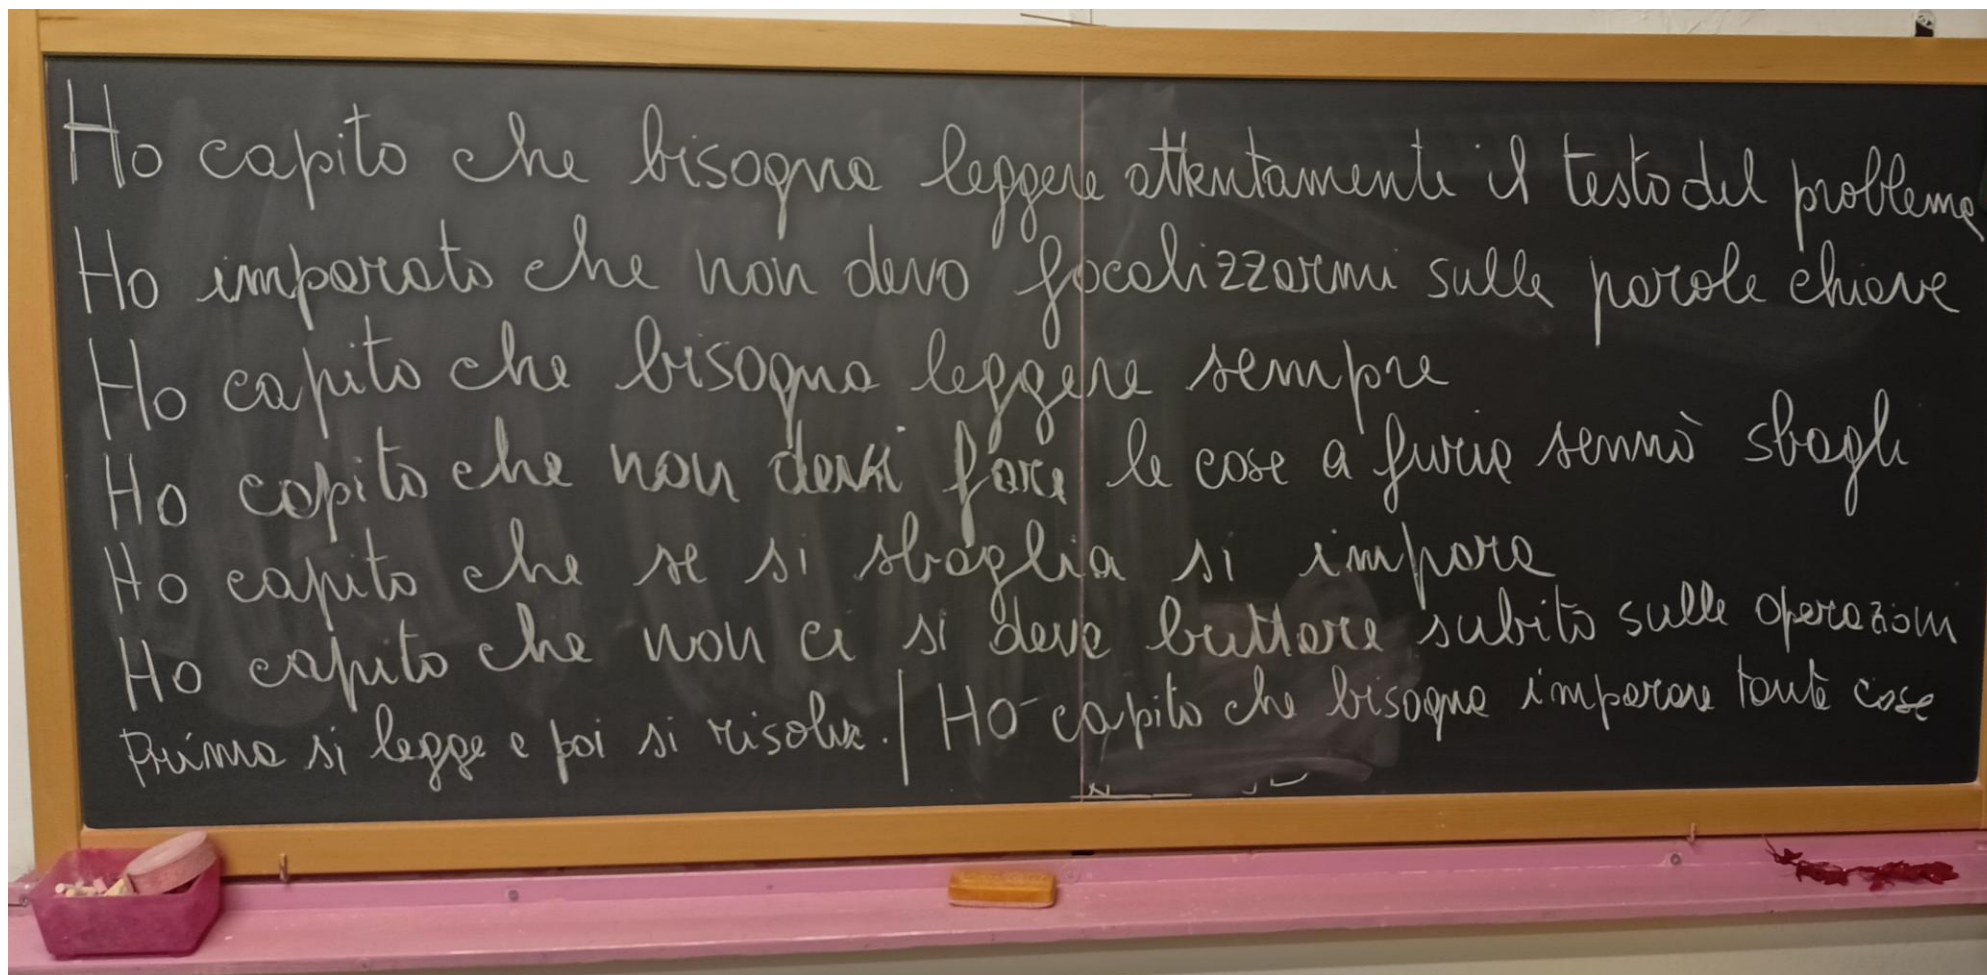 Ho capito che bisogna leggere attentamente il testo del problema
Ho imparato che non devo focalizzarmi sulle parole chiave
Ho capito che bisogna leggere sempre
Ho capito che non devi fare le cose a furia sennò sbagli
Ho capito che se si sbaglia si impara
Ho capito che non ci si deve buttare subito sulle operazioni
Prima si legge e poi si risolve. | Ho capito che bisogna imparare tante cose